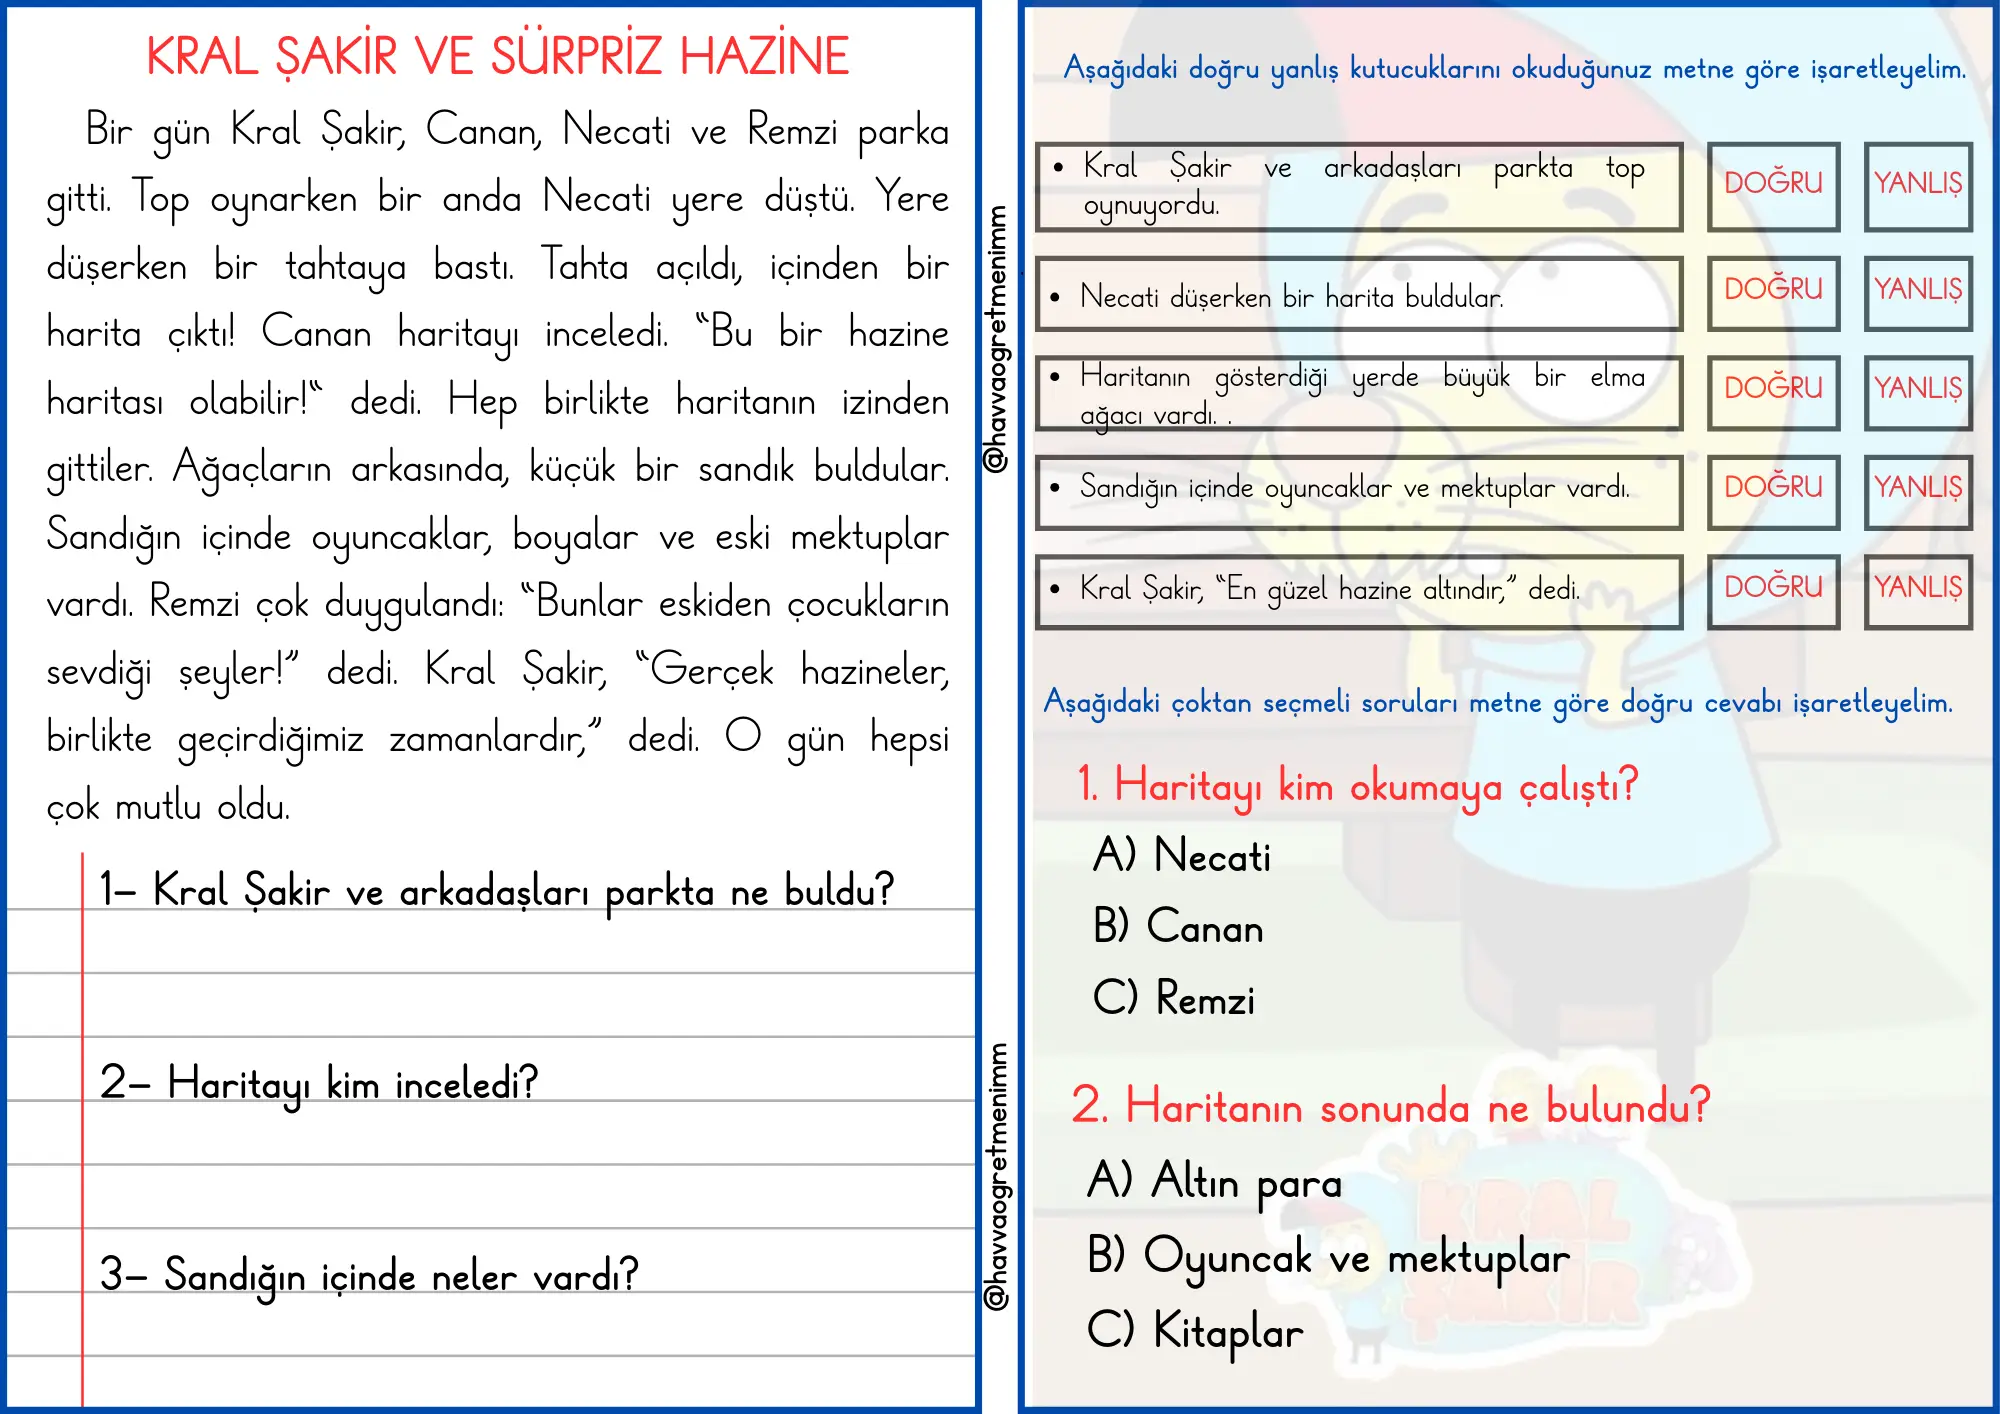 KRAL ŞAKİR VE SÜRPRİZ HAZİNE
Bir gün Kral Şakir, Canan, Necati ve Remzi parka
gitti. Top oynarken bir anda Necati yere düştü. Yere
düşerken bir tahtaya bastı. Tahta açıldı, içinden bir
harita çıktı! Canan haritayı inceledi. “Bu bir hazine
haritası olabilir!“ dedi. Hep birlikte haritanın izinden
gittiler. Ağaçların arkasında, küçük bir sandık buldular.
Sandığın içinde oyuncaklar, boyalar ve eski mektuplar
vardı. Remzi çok duygulandı: “Bunlar eskiden çocukların
sevdiği şeyler!” dedi. Kral Şakir, “Gerçek hazineler,
birlikte geçirdiğimiz zamanlardır,” dedi. O gün hepsi
çok mutlu oldu.
1- Kral Şakir ve arkadaşları parkta ne buldu?
2- Haritayı kim inceledi?
3- Sandığın içinde neler vardı?
@havvaogretmenimm
@havvaogretmenimm
Aşağıdaki doğru yanlış kutucuklarını okuduğunuz metne göre işaretleyelim.
• Kral Şakir ve arkadaşları parkta top
oynuyordu.
DOĞRU YANLIŞ
• Necati düşerken bir harita buldular.
DOĞRU YANLIŞ
• Haritanın gösterdiği yerde büyük bir elma
ağacı vardı. .
DOĞRU YANLIŞ
• Sandığın içinde oyuncaklar ve mektuplar vardı.
DOĞRU YANLIŞ
• Kral Şakir, “En güzel hazine altındır,” dedi.
DOĞRU YANLIŞ
Aşağıdaki çoktan seçmeli soruları metne göre doğru cevabı işaretleyelim.
1. Haritayı kim okumaya çalıştı?
A) Necati
B) Canan
C) Remzi
2. Haritanın sonunda ne bulundu?
A) Altın para
B) Oyuncak ve mektuplar
C) Kitaplar
KRAL
ŞAKİR